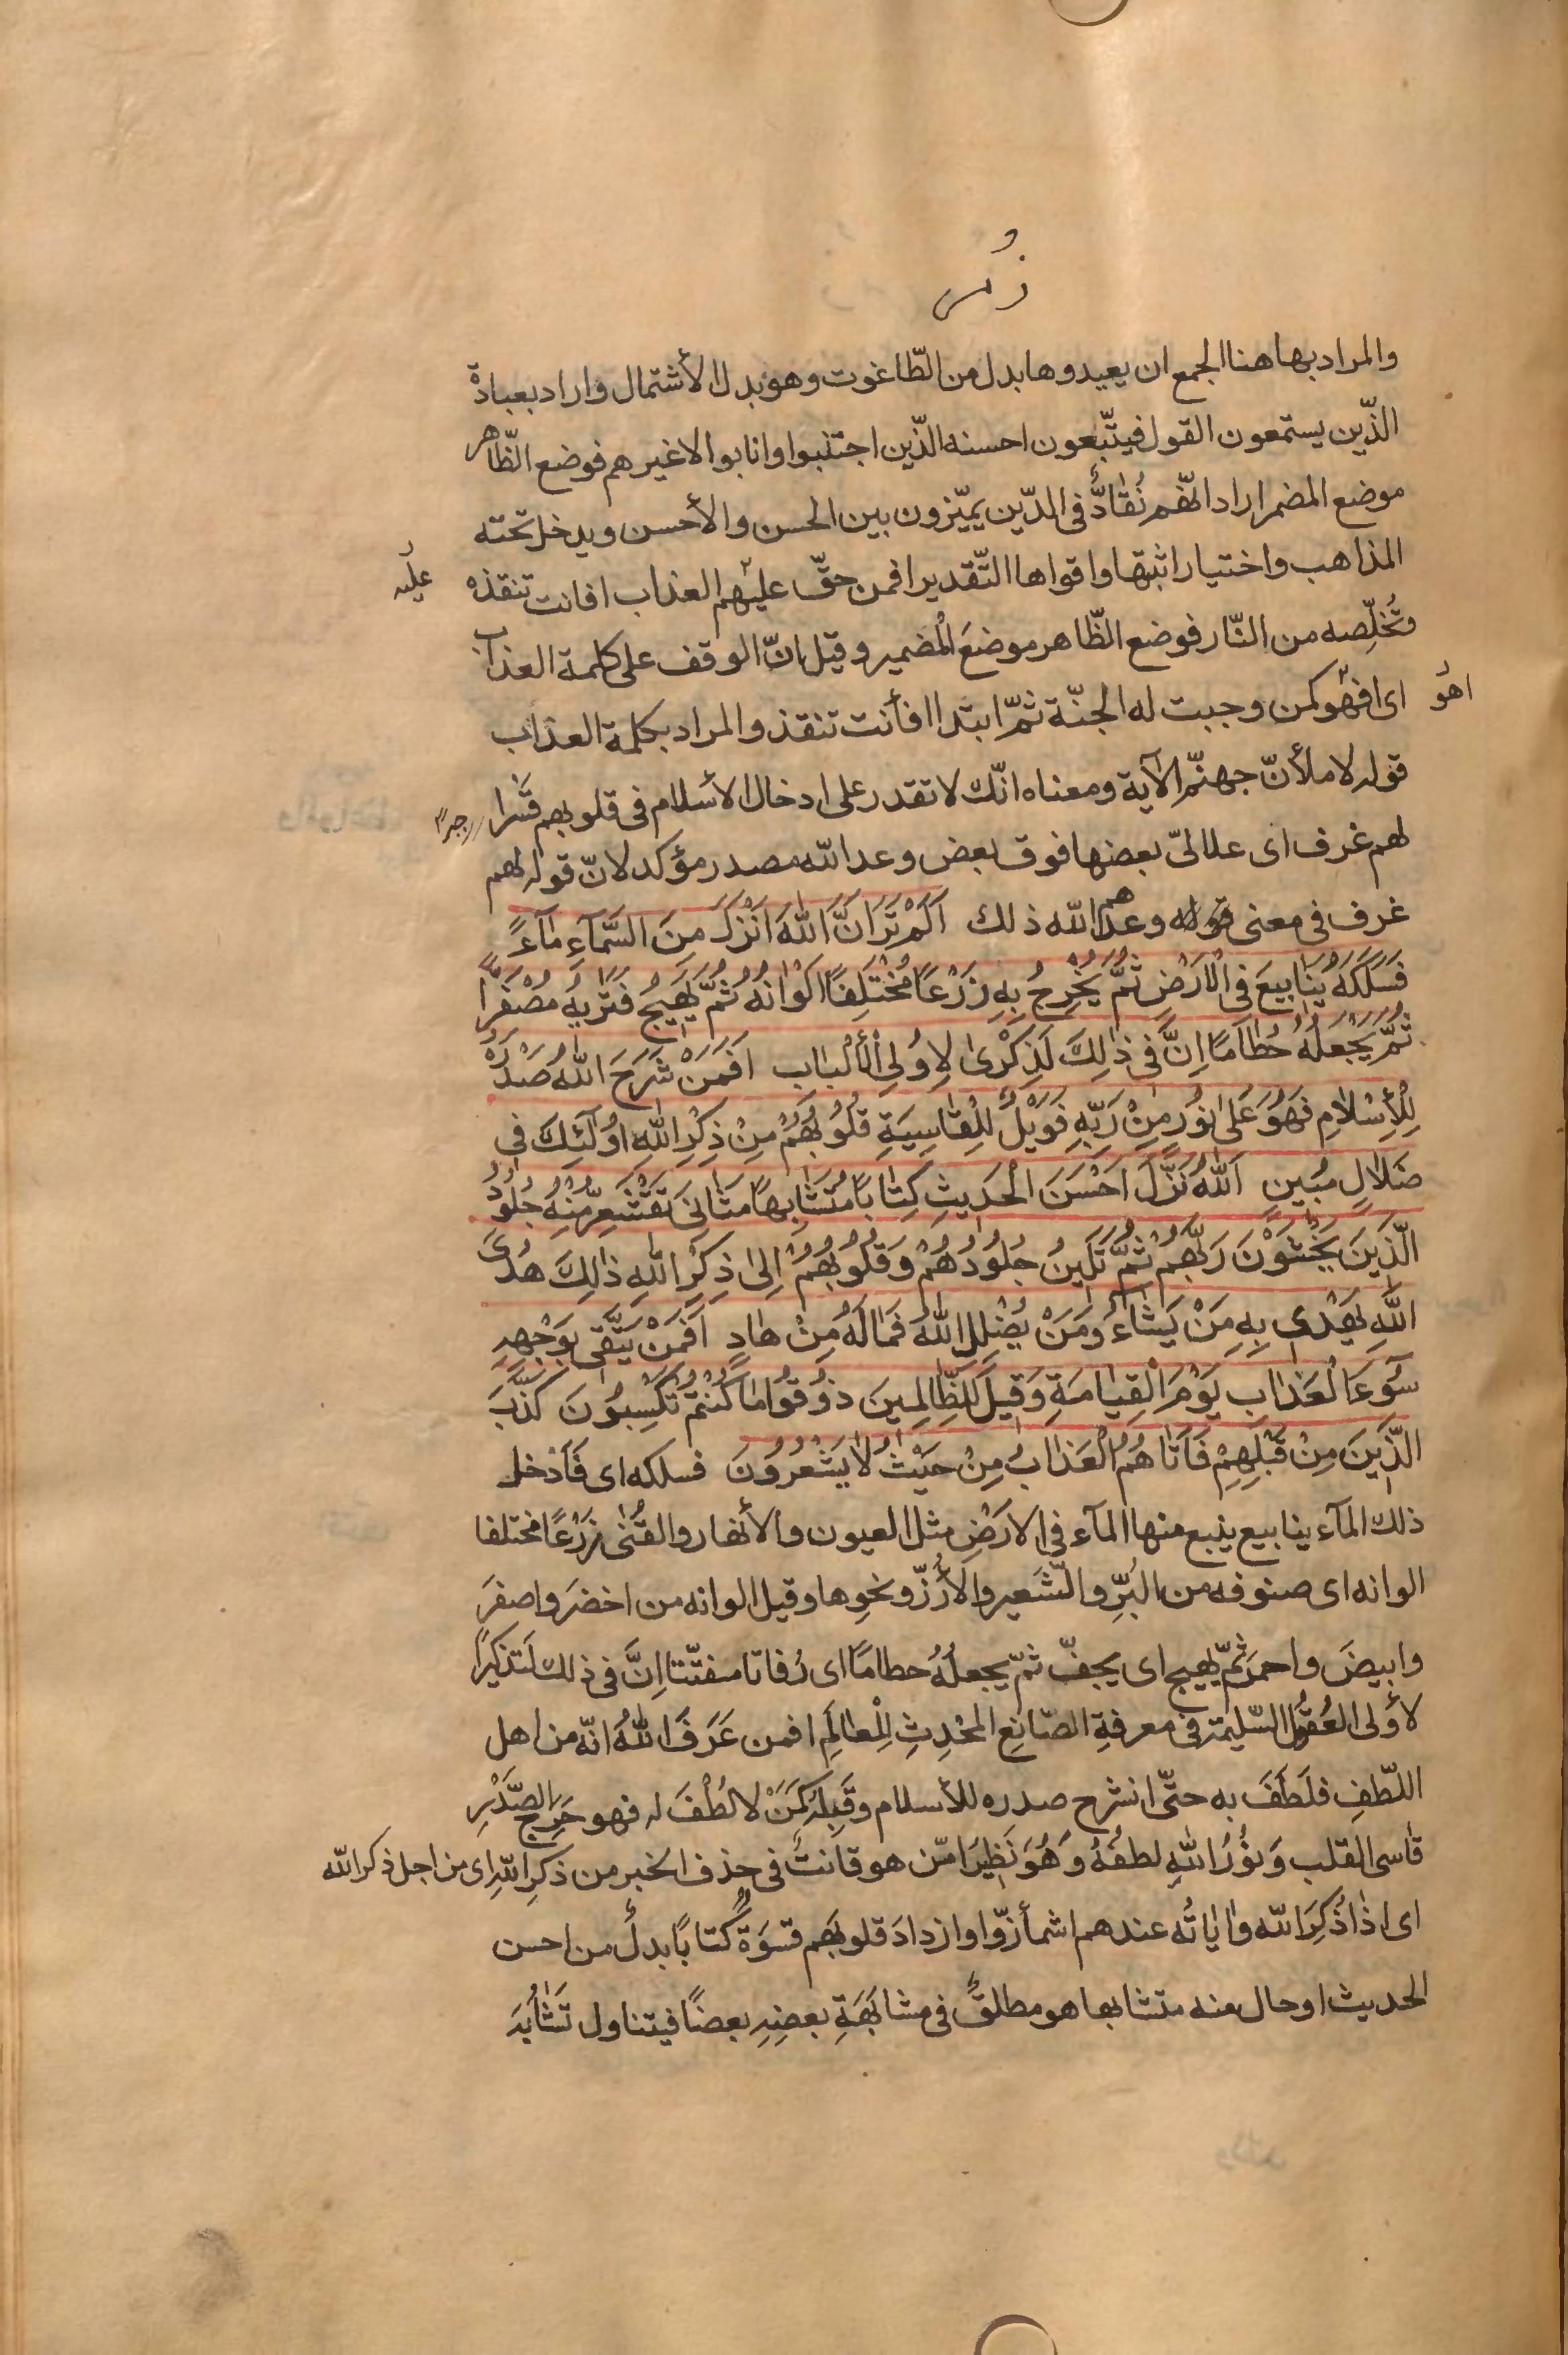 زُمَر
والمراد بها هنا الجمع ان يعبدوها بدل من الطّاغوت وهو بدل الأشتمال واراد بعبادة
الذّين يستمعون القول فيتّبعون احسنه الذّين اجتنبوا وانابوا لا غيرهم فوضع الظّاهر
موضع المضمر اراد انّهم نُقّادٌ فى الدّين يميّزون بين الحسن والأحسن ويدخل تحته
المذاهب واختيار اثبتها واقواها التّقدير افمن حقّ عليهم العذاب افانت تنقذه
عليه
وتُخلّصه من النّار فوضع الظّاهر موضعَ الْمُضمير وقيل انّ الوقف على كلمة العذاب
اهو
اى افهو كمن وجبت له الجنّة ثمّ ابتدا افأنت تنقذ والمراد بكلمة العذاب
قوله لاملأنّ جهنّم الآية ومعناه انّك لا تقدر على ادخال الأسلام فى قلوبهم قسْرا
جبرا
لهم غرف اى علالىّ بعضها فوق بعض وعد الله مصدر مؤكد لانّ قوله لهم
غرف فى معنى قوله وعدهم الله ذلك اَلَمْ تَرَ اَنَّ اللهَ اَنْزَلَ مِنَ السَّمَآءِ مَآءً
فَسَلَكَهُ يَنَابِيعَ فِى الْاَرْضِ ثُمَّ يُخْرِجُ بِهِ زَرْعًا مُخْتَلِفًا اَلْوَانُهُ ثُمَّ يَهِيجُ فَتَرٰيهُ مُصْفَرًّا
ثُمَّ يَجْعَلُهُ حُطَامًا اِنَّ فِى ذٰلِكَ لَذِكْرٰى لِاُولِى الْأَلْبَابِ اَفَمَنْ شَرَحَ اللهُ صَدْرَهُ
لِلْاِسْلَامِ فَهُوَ عَلىٰ نُورٍ مِنْ رَبِّهِ فَوَيْلٌ لِلْقَاسِيَةِ قُلُوبُهُمْ مِنْ ذِكْرِ اللهِ اُولٰٓئِكَ فِى
ضَلَالٍ مُبِينٍ اَللهُ نَزَّلَ اَحْسَنَ الْحَدِيثِ كِتَابًا مُتَشَابِهًا مَثَانِىَ تَقْشَعِرُّ مِنْهُ جُلُودُ
الَّذِينَ يَخْشَوْنَ رَبَّهُمْ ثُمَّ تَلِينُ جُلُودُهُمْ وَقُلُوبُهُمْ اِلىٰ ذِكْرِ اللهِ ذٰلِكَ هُدَى
اللهِ يَهْدِى بِهِ مَنْ يَشَاءُ وَمَنْ يُضْلِلِ اللهُ فَمَا لَهُ مِنْ هَادٍ اَفَمَنْ يَتَّقِى بِوَجْهِهِ
سُوٓءَ الْعَذَابِ يَوْمَ الْقِيَامَةِ وَقِيلَ لِلظَّالِمِينَ ذُوقُوا مَا كُنْتُمْ تَكْسِبُونَ كَذَّبَ
الَّذِينَ مِنْ قَبْلِهِمْ فَاَتَاهُمُ الْعَذَابُ مِنْ حَيْثُ لَا يَشْعُرُونَ فسلكه اى فَاَدْخل
ذلك المآء ينابيع ينبع منها المآء فى الارَضِ مثل العيون والأنهار والقُنٰى زَرْعًا مختلفا
الوانه اى صنوفه من البُرِّ والشَّعير والأُرُزّ ونحوها وقيل الوانه من اخضرَ واصفرَ
وابيضَ واحمرَ ثمّ يهيج اى يجفّ ثمّ يجعلُهُ حطامًا اى رُفاتا متفتّتا اِنَّ فى ذلك لَتذكيرًا
لأُولى العُقُول السّليمة فى معرفةِ الصّانِع المُحْدِثِ لِلْعالَمِ افمن عَرَفَ اللهُ انّه من اهل
اللّطفِ فلَطَفَ به حتّى انشرح صدره للأسلام وقَبِلَه كَمَنْ لا لُطْفَ له فهو حَرِجُ الصَّدْرِ
قاسى القلب وَنُورُ اللهِ لطفُهُ وَهُوَ نَظِيرُ امّن هو قانتٌ فى حذف الخبر من ذكرِ اللهِ اى من اجل ذكر الله
اى اذا ذُكِرَ الله واٰياتُه عندهم اشمأزّوا وازدادَ قلوبهم قسَوةً كتابًا بدلٌ من احسن
الحديث او حال منه متشابها هو مطلقٌ فى مشابَهَةِ بعضِهِ بعضًا فيتناول تَشَابُهَ